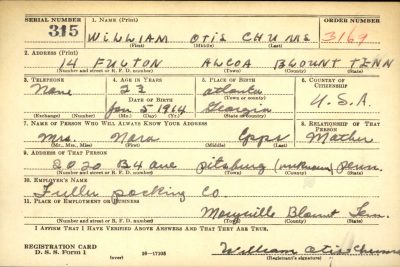 SERIAL NUMBER 1. NAME (Print) ORDER NUMBER
315 WILLIAM OTIS CHUMS 3169
(First) (Middle) (Last)
2. ADDRESS (Print)
14 FULTON ALCOA BLOUNT TENN
(Number and street or R. F. D. number) (Town) (County) (State)
3. TELEPHONE 4. AGE IN YEARS 5. PLACE OF BIRTH 6. COUNTRY OF CITIZENSHIP
None 23 atlanta
DATE OF BIRTH (Town or county) U.S.A
Jan 5 1914 Georgia
(Exchange) (No.) (Mo.) (Day) (Yr.) (State or country)
7. NAME OF PERSON WHO WILL ALWAYS KNOW YOUR ADDRESS 8. RELATIONSHIP OF THAT PERSON
Mrs. Nora Epps Mother
(Mr., Mrs., Miss) (First) (Middle) (Last)
9. ADDRESS OF THAT PERSON
2020 B4 ave pitsburg (unknown) penn.
(Number and street or R. F. D. number) (Town) (County) (State)
10. EMPLOYER'S NAME
Fuller packing Co
11. PLACE OF EMPLOYMENT OR BUSINESS
Maryville Blount Tenn.
(Number and street or R. F. D. number) (Town) (County) (State)
I AFFIRM THAT I HAVE VERIFIED ABOVE ANSWERS AND THAT THEY ARE TRUE.
REGISTRATION CARD
D. S. S. Form 1 (over) 16—17105 William Otis Chums
(Registrant's signature)